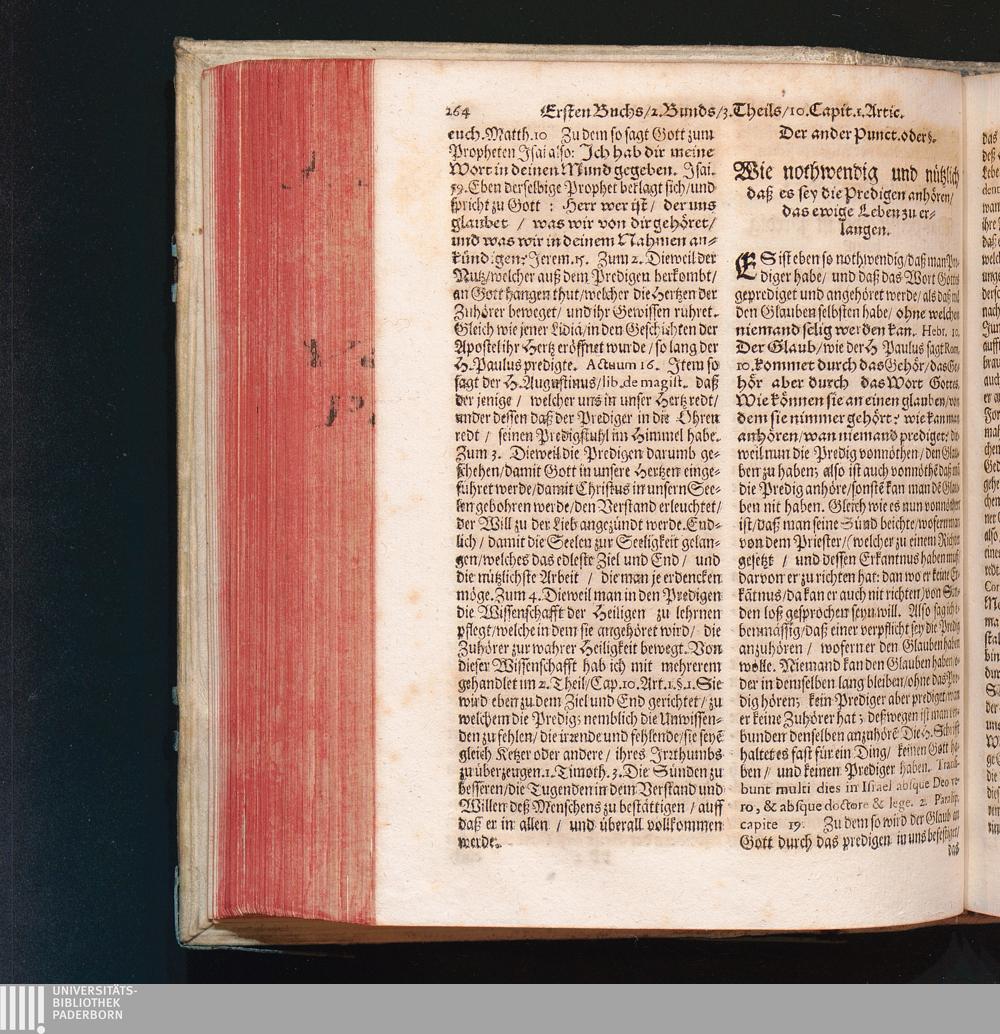 264 Ersten Buchs/2. Bunds/3. Theils/10. Capit. 1. Artic.
euch. Matth. 10 Zu dem so sagt Gott zum
Propheten Isai also: Ich hab dir meine
Wort in deinen Mund gegeben. Isai.
59. Eben derselbige Prophet beklagt sich/und
spricht zu Gott : Herr wer ist / der uns
glaubet / was wir von dir gehöret/
und was wir in deinem Nahmen an-
kündigen? Jerem. 15. Zum 2. Dieweil der
Nutz/welcher auß dem Predigen herkombt/
an Gott hangen thut/welcher die Hertzen der
Zuhörer beweget/ und ihr Gewissen rühret.
Gleich wie jener Lidia/in den Geschichten der
Apostel ihr Hertz eröffnet wurde/ so lang der
H. Paulus predigte. Actuum 16. Item so
sagt der H. Augustinus/lib. de magist. daß
der jenige / welcher uns in unser Hertz redt/
under dessen daß der Prediger in die Ohren
redt / seinen Predigstuhl im Himmel habe.
Zum 3. Dieweil die Predigen darumb ge-
schehen/damit Gott in unsere Hertzen einge-
führet werde/damit Christus in unsern See-
len gebohren werde/den Verstand erleuchtet/
der Will zu der Lieb angezündt werde. End-
lich / damit die Seelen zur Seeligkeit gelan-
gen/welches das edleste Ziel und End / und
die nützlichste Arbeit / die man je erdencken
möge. Zum 4. Dieweil man in den Predigen
die Wissenschafft der Heiligen zu lehrnen
pflegt/welche in dem sie angehöret wird/ die
Zuhörer zur wahrer Heiligkeit bewegt. Von
dieser Wissenschafft hab ich mit mehrerem
gehandlet im 2. Theil/Cap. 10. Art. 1. §. 1. Sie
wird eben zu dem Ziel und End gerichtet/ zu
welchem die Predig; nemblich die Unwissen-
den zu fehlen/die irrende und fehlende/sie seyē
gleich Ketzer oder andere / ihres Irrthumbs
zu überzeugen. 1. Timoth. 3. Die Sünden zu
besseren/die Tugenden in dem Verstand und
Willen deß Menschens zu bestättigen / auff
daß er in allen / und überall vollkommen
werde.
Der ander Punct. oder §.
Wie nothwendig und nützlich
daß es sey die Predigen anhören/
das ewige Leben zu er-
langen.
ES ist eben so nothwendig/daß man Pre-
diger habe/ und daß das Wort Gottes
geprediget und angehöret werde/als daß man
den Glauben selbsten habe/ ohne welchen
niemand selig werden kan. Hebr. 10.
Der Glaub/wie der H Paulus sagt Rom.
10. kommet durch das Gehör/das Ge-
hör aber durch das Wort Gottes.
Wie können sie an einen glauben/von
dem sie nimmer gehört? wie kan man
anhören/wan niemand prediget? die-
weil nun die Predig vonnöthen/den Glau-
ben zu haben; also ist auch vonnöthē daß man
die Predig anhöre/sonstē kan man dē Glau-
ben nit haben. Gleich wie es nun vonnöthen
ist/daß man seine Sünd beichte/wofern man
von dem Priester/(welcher zu einem Richter
gesetzt / und dessen Erkantnus haben muß
darvon er zu richten hat: dan wo er keine Er-
kātnus/da kan er auch nit richten/von Sün-
den loß gesprochen seyn will. Also sag ich e-
benmässig/daß einer verpflicht sey die Predig
anzuhören / woferner den Glauben haben
wölle. Niemand kan den Glauben haben/o-
der in demselben lang bleiben/ohne das Pre-
dig hören; kein Prediger aber prediget/wan
er keine Zuhörer hat; deßwegen ist man ver-
bunden denselben anzuhörē Die H. Schrifft
haltet es fast für ein Ding/ keinen Gott ha-
ben / und keinen Prediger haben. Transi-
bunt multi dies in Israel absque Deo ve-
ro, & absque doctore & lege. 2. Paralip.
capite 19. Zu dem so wird der Glaub an
Gott durch das predigen in uns befestiget/
das
UNIVERSITÄTS-
BIBLIOTHEK
PADERBORN